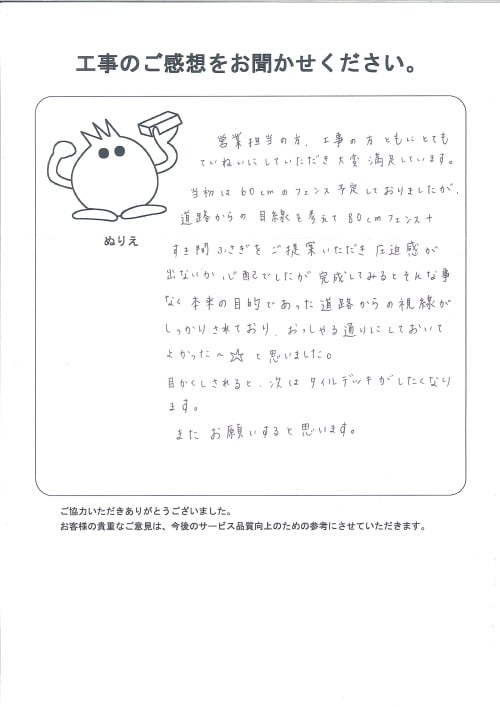 工事のご感想をお聞かせください。
ぬりえ
営業担当の方、工事の方ともにとても
ていねいにしていただき大変満足しています。
当初は60cmのフェンス予定しておりましたが、
道路からの目線を考えて80cmフェンス+
すき間ふさぎをご提案いただき圧迫感が
出ないか心配でしたが完成してみるとそんな事
なく本来の目的であった道路からの視線が
しっかりされており、おっしゃる通りにしておいて
よかった〜☆と思いました。
目かくしされると、次はタイルデッキがしたくなり
ます。
またお願いすると思います。
ご協力いただきありがとうございました。
お客様の貴重なご意見は、今後のサービス品質向上のための参考にさせていただきます。